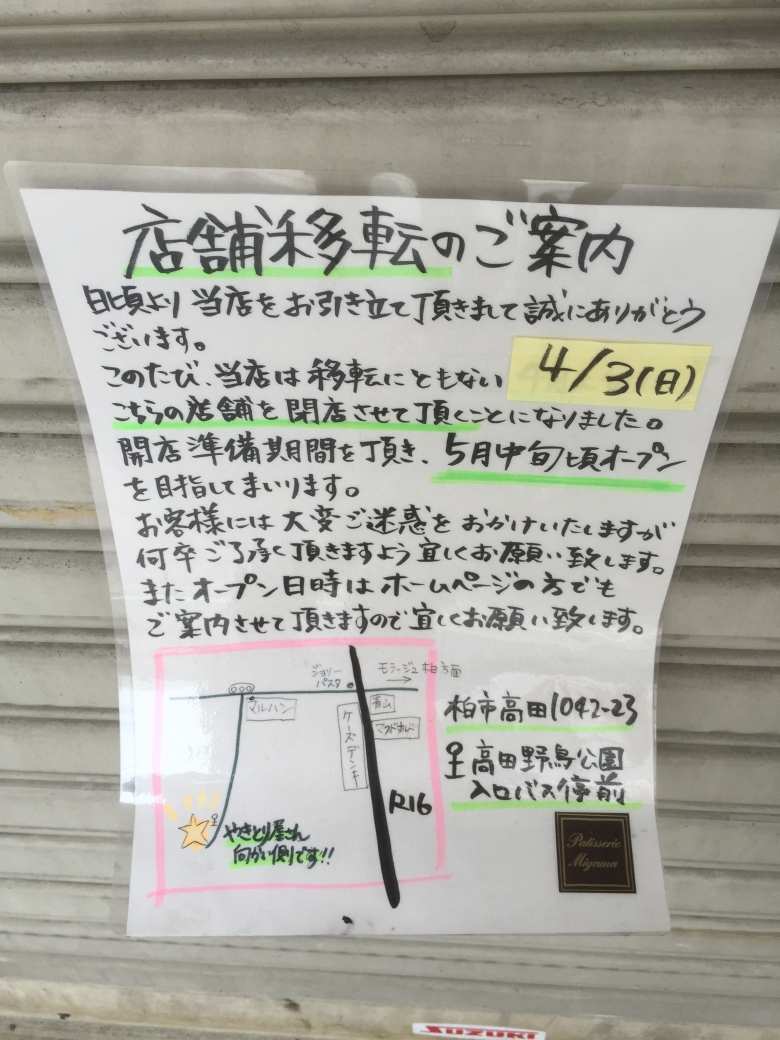 店舗移転のご案内
日頃より当店をお引き立て頂きまして誠にありがとう
ございます。
このたび、当店は移転にともない 4/3(日)
こちらの店舗を閉店させて頂くことになりました。
開店準備期間を頂き、5月中旬頃オープン
を目指してまいります。
お客様には大変ご迷惑をおかけいたしますが
何卒ご了承く頂きますよう宜しくお願い致します。
またオープン日時はホームページの方でも
ご案内させて頂きますので宜しくお願い致します。
ジョリー
パスタ
モラージュ柏方面
マルハン
ケーズデンキ
青山
マクドナルド
R16
やきとり屋さん
向かい側です!!
柏市高田1042-23
高田野鳥公園
入口バス停前
Patisserie
Miyama
SUZUKI